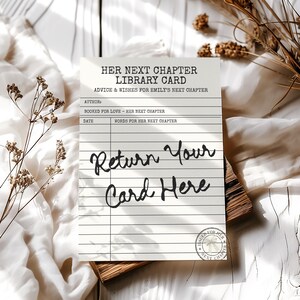 HER NEXT CHAPTER
LIBRARY CARD
ADVICE & WISHES FOR EMILY'S NEXT CHAPTER
AUTHOR:
BOOKED FOR LOVE - HER NEXT CHAPTER
DATE WORDS FOR HER NEXT CHAPTER
Return Your
Card Here